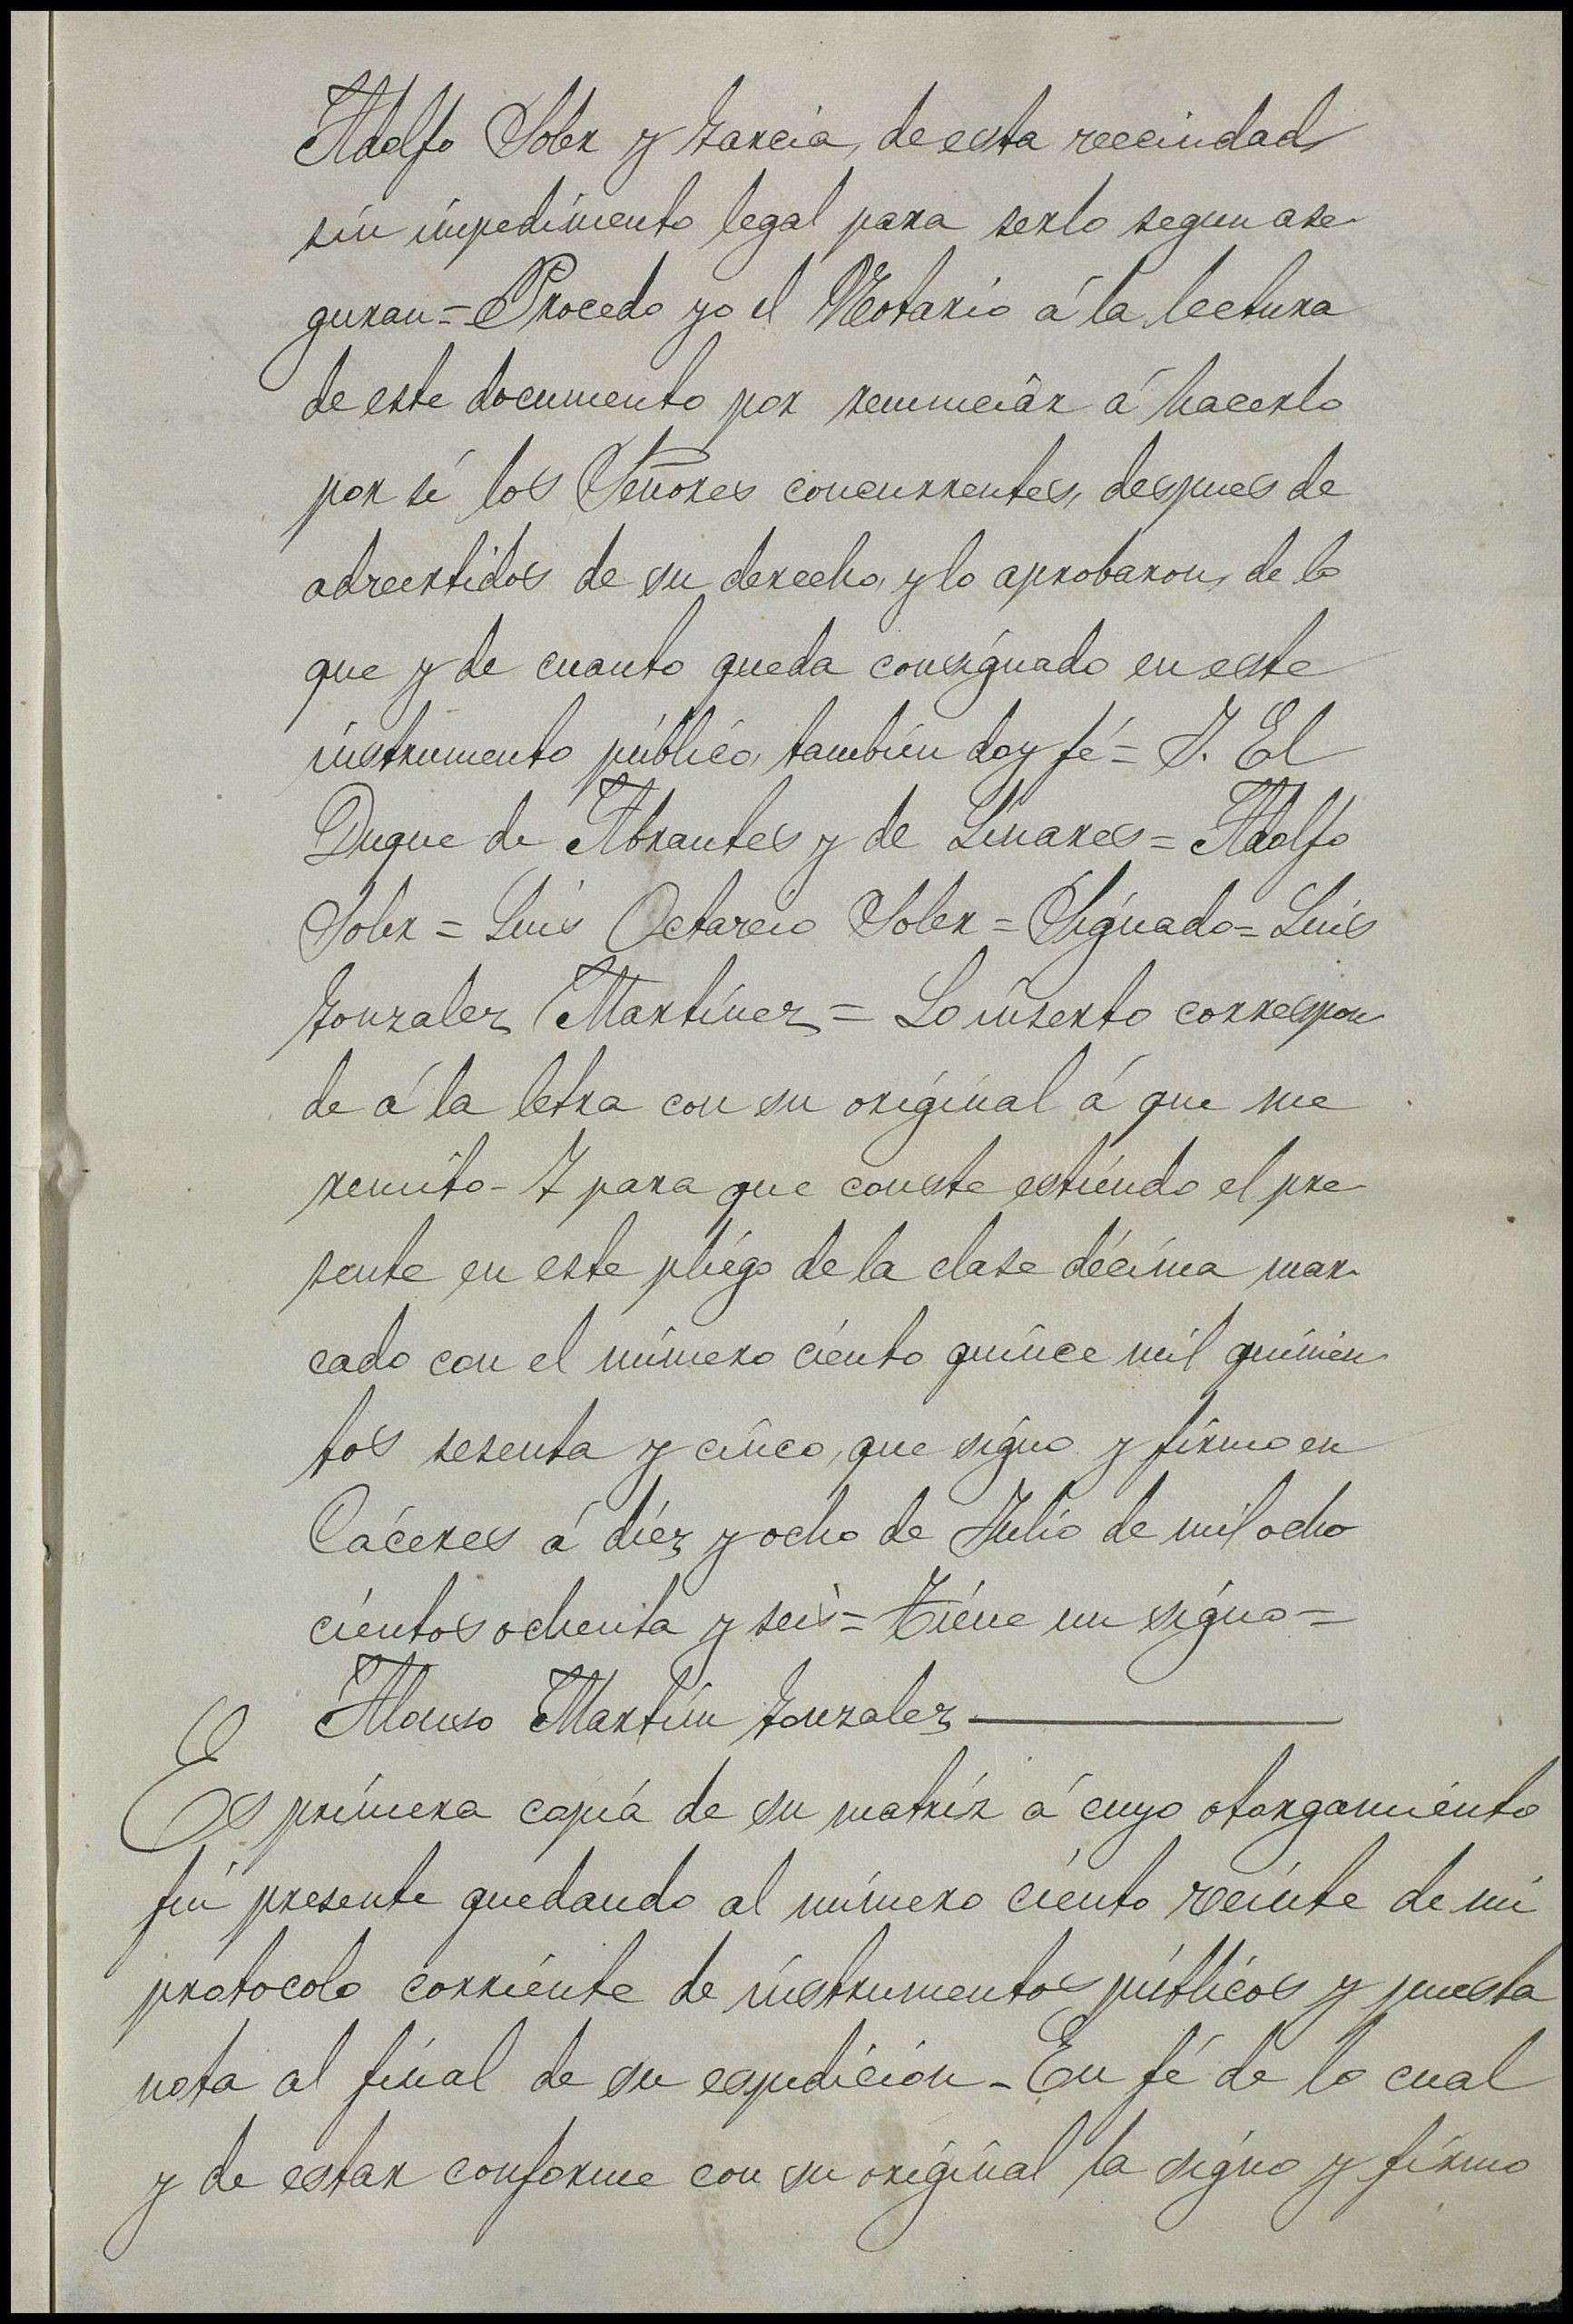 Adolfo Soler y Garcia, de esta vecindad
sin impedimento legal para serlo segun ase-
guran = Procedo yo el Notario á la lectura
de este documento por renunciar á hacerlo
por sí los Señores concurrentes, despues de
advertidos de su derecho, y lo aprobaron, de lo
que y de cuanto queda consignado en este
instrumento público, tambien doy fé = J. El
Duque de Abrantes y de Linares = Adolfo
Soler = Luis Octavio Soler = Signado = Luis
Gonzalez Martinez = Lo inserto correspon
de á la letra con su original á que me
remito - Y para que conste estiendo el pre-
sente en este pliego de la clase décima mar-
cado con el número ciento quince mil quinien-
tos sesenta y cinco, que signo y firmo en
Cáceres á diez y ocho de Julio de mil ocho
cientos ochenta y seis = Tiene un signo =
Alonso Martin Gonzalez
Es primera copia de su matriz á cuyo otorgamiento
fuí presente quedando al número ciento veinte de mi
protocolo corriente de instrumentos públicos y puesta
nota al final de su espedición - En fé de lo cual
y de estar conforme con su original la signo y firmo